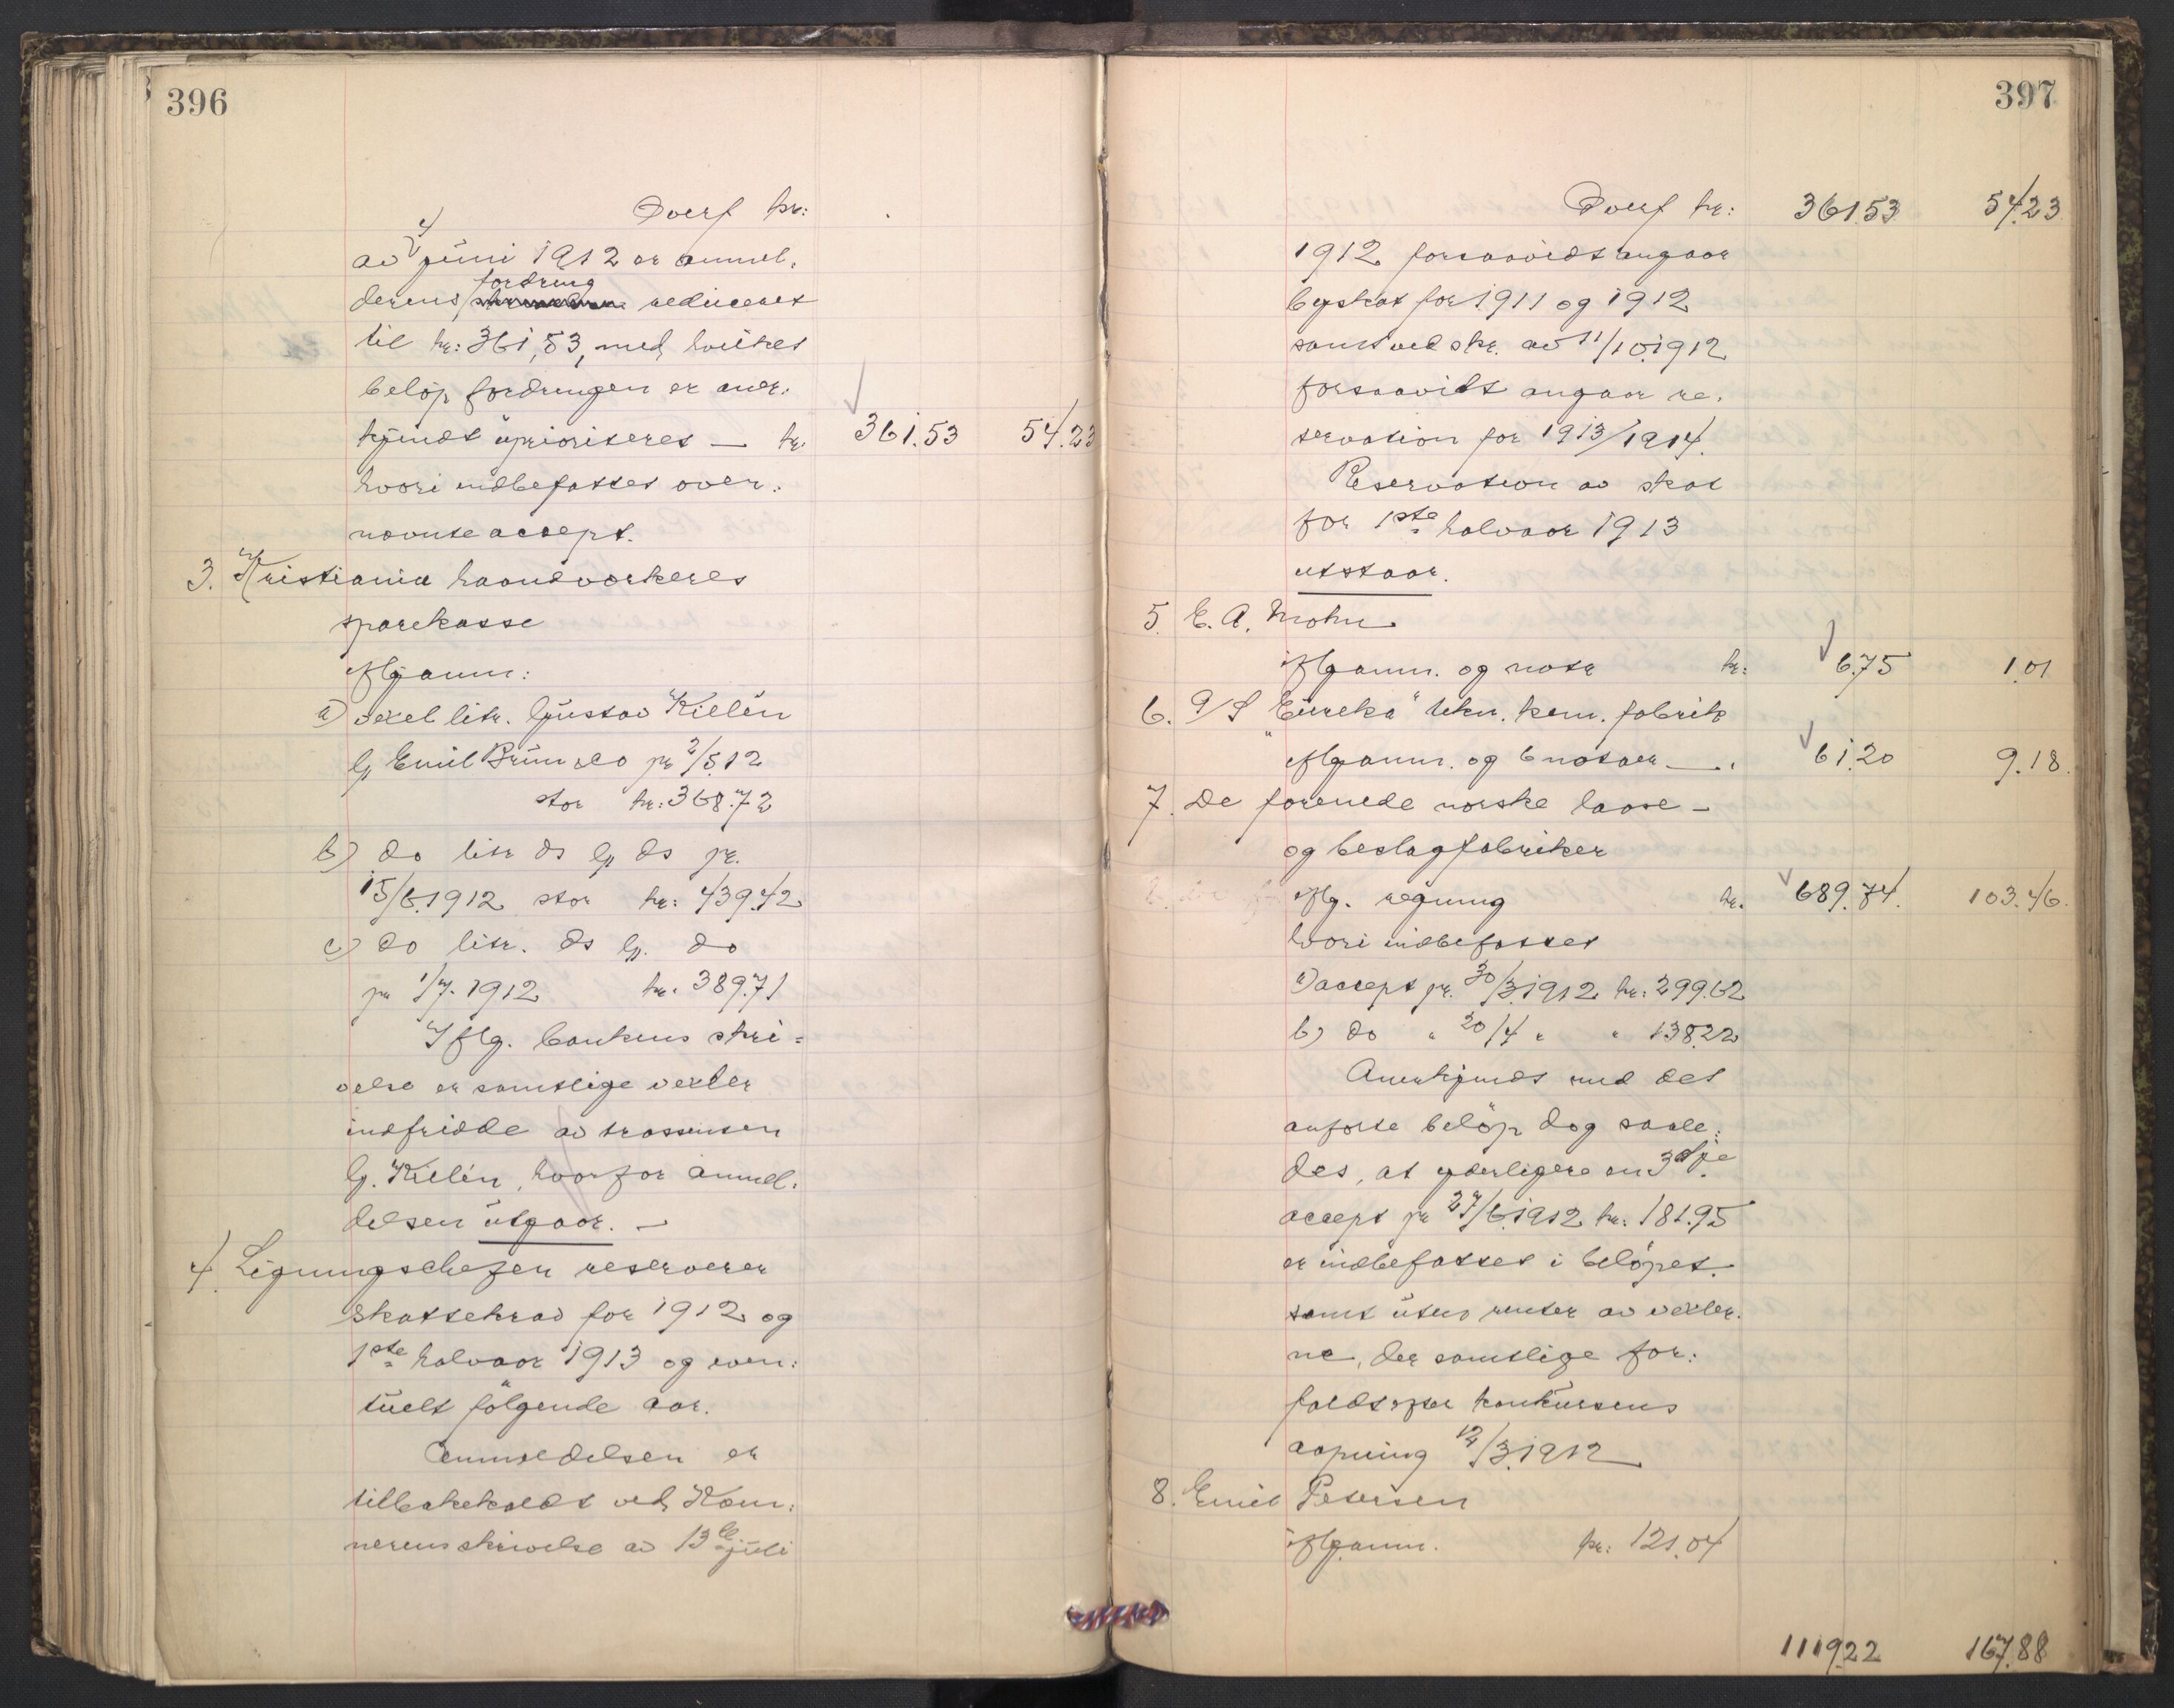 396
Overf kr:
av 4/ juni 1912 er anmel-
derens fordring reduceret
til kr: 361,53, med hvilket
beløp fordringen er aner-
kjendt uprioriteret — kr. 361.53 54.23
hvori indbefattet oven-
nævnte accept.
3. Kristiania haandverkeres
sparekasse
iflg anm:
a) vexel litr. Gustav Kielén
G Emil Bruun & Co pr 2/5.12
stor kr: 368.72
b) do litr do G do pr.
15/6.1912 stor kr: 439.42
c) do litr. do G. do
pr 1/7.1912 kr. 389.71
Iflg. bankens skri-
velse er samtlige vexler
indfridde av trassenten
G. Kielén, hvorfor anmel-
delsen utgaar. —
4. Ligningschefen reserverer
skattekrav for 1912 og
1ste halvaar 1913 og even-
tuelt følgende aar.
Anmeldelsen er
tilbakekaldt ved Kem-
nerens skrivelse av 13de juli
397
Overf kr: 361.53 54.23
1912 forsaavidt angaar
byskat for 1911 og 1912
samt ved skr. av 11/10.1912
forsaavidt angaar re-
servation for 1913/1914.
Reservation av skat
for 1ste halvaar 1913
utstaar.
5. E. A. Mohn
iflg anm. og nota kr: 6.75 1.01
6. A/S "Eureka" tekn. kem. fabrik
iflg anm. og 6 notaer — . 61.20 9.18.
7. De forenede norske laase-
og beslagfabriker
iflg. regning kr. 689.74. 103.46.
hvori indbefattet
a) accept pr. 30/3.1912 kr: 299.62
b) do " 20/4 " " 138.22
Anerkjendt med det
anførte beløp dog saale-
des, at yderligere en 3dje
accept pr 27/6.1912 kr: 181.95
er indbefattet i beløpet.
samt uten renter av vexler-
ne, der samtlige for-
faldt efter konkursens
aapning 12/3.1912
8. Emil Petersen
iflg anm. kr: 121.04
1119.22 167.88